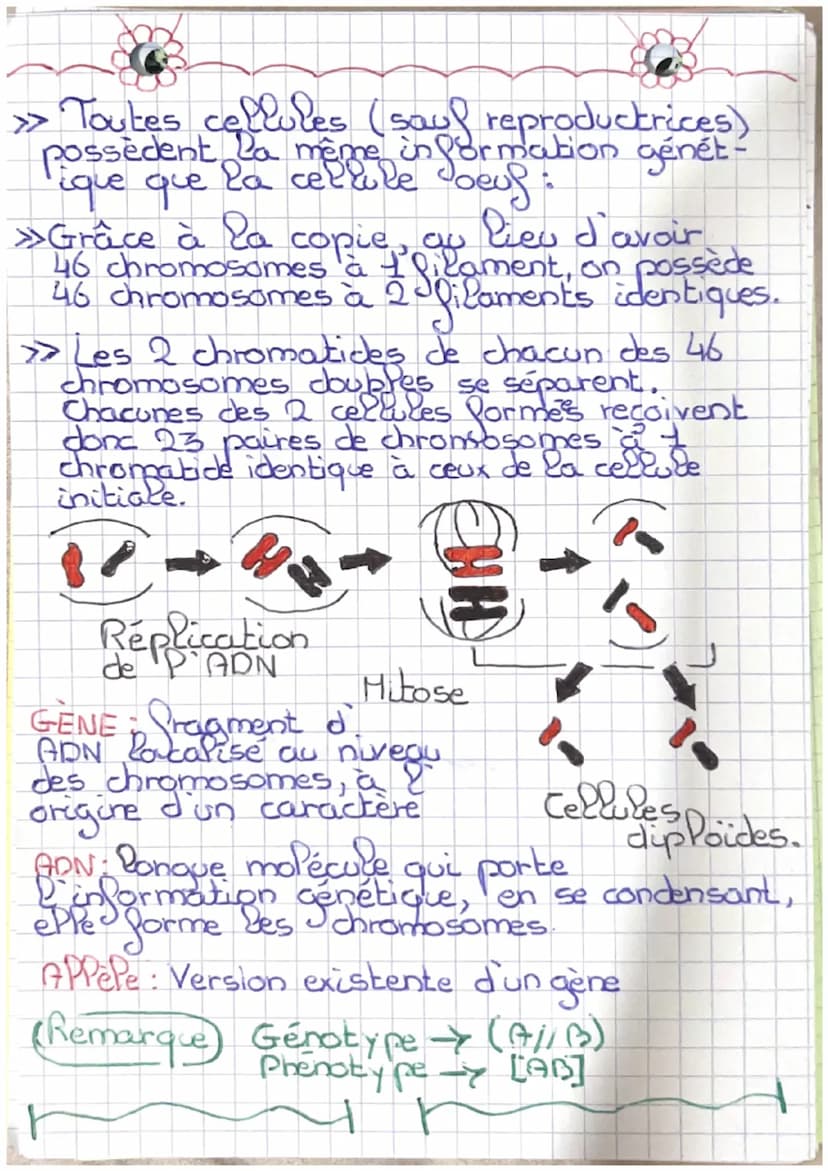 >> Toutes cellules (sauf reproductrices)
possèdent la même information génét-
ique que la cellule oeuf :
>> Grâce à la copie, au lieu d'avoir
46 chromosomes à 1 filament, on possède
46 chromosomes à 2 filaments identiques.
>> Les 2 chromatides de chacun des 46
chromosomes doubles se séparent.
Chacunes des 2 cellules formées reçoivent
donc 23 paires de chromosomes à 1
chromatide identique à ceux de la cellule
initiale.
Réplication
de l'ADN
Mitose
Cellules
diploïdes.
GÈNE : fragment d'
ADN localisé au niveau
des chromosomes, à l'
origine d'un caractère
ADN : longue molécule qui porte
l'information génétique, en se condensant,
elle forme les chromosomes.
Allèle : Version existente d'un gène
Remarque Génotype → (A//B)
Phénotype → [AB]